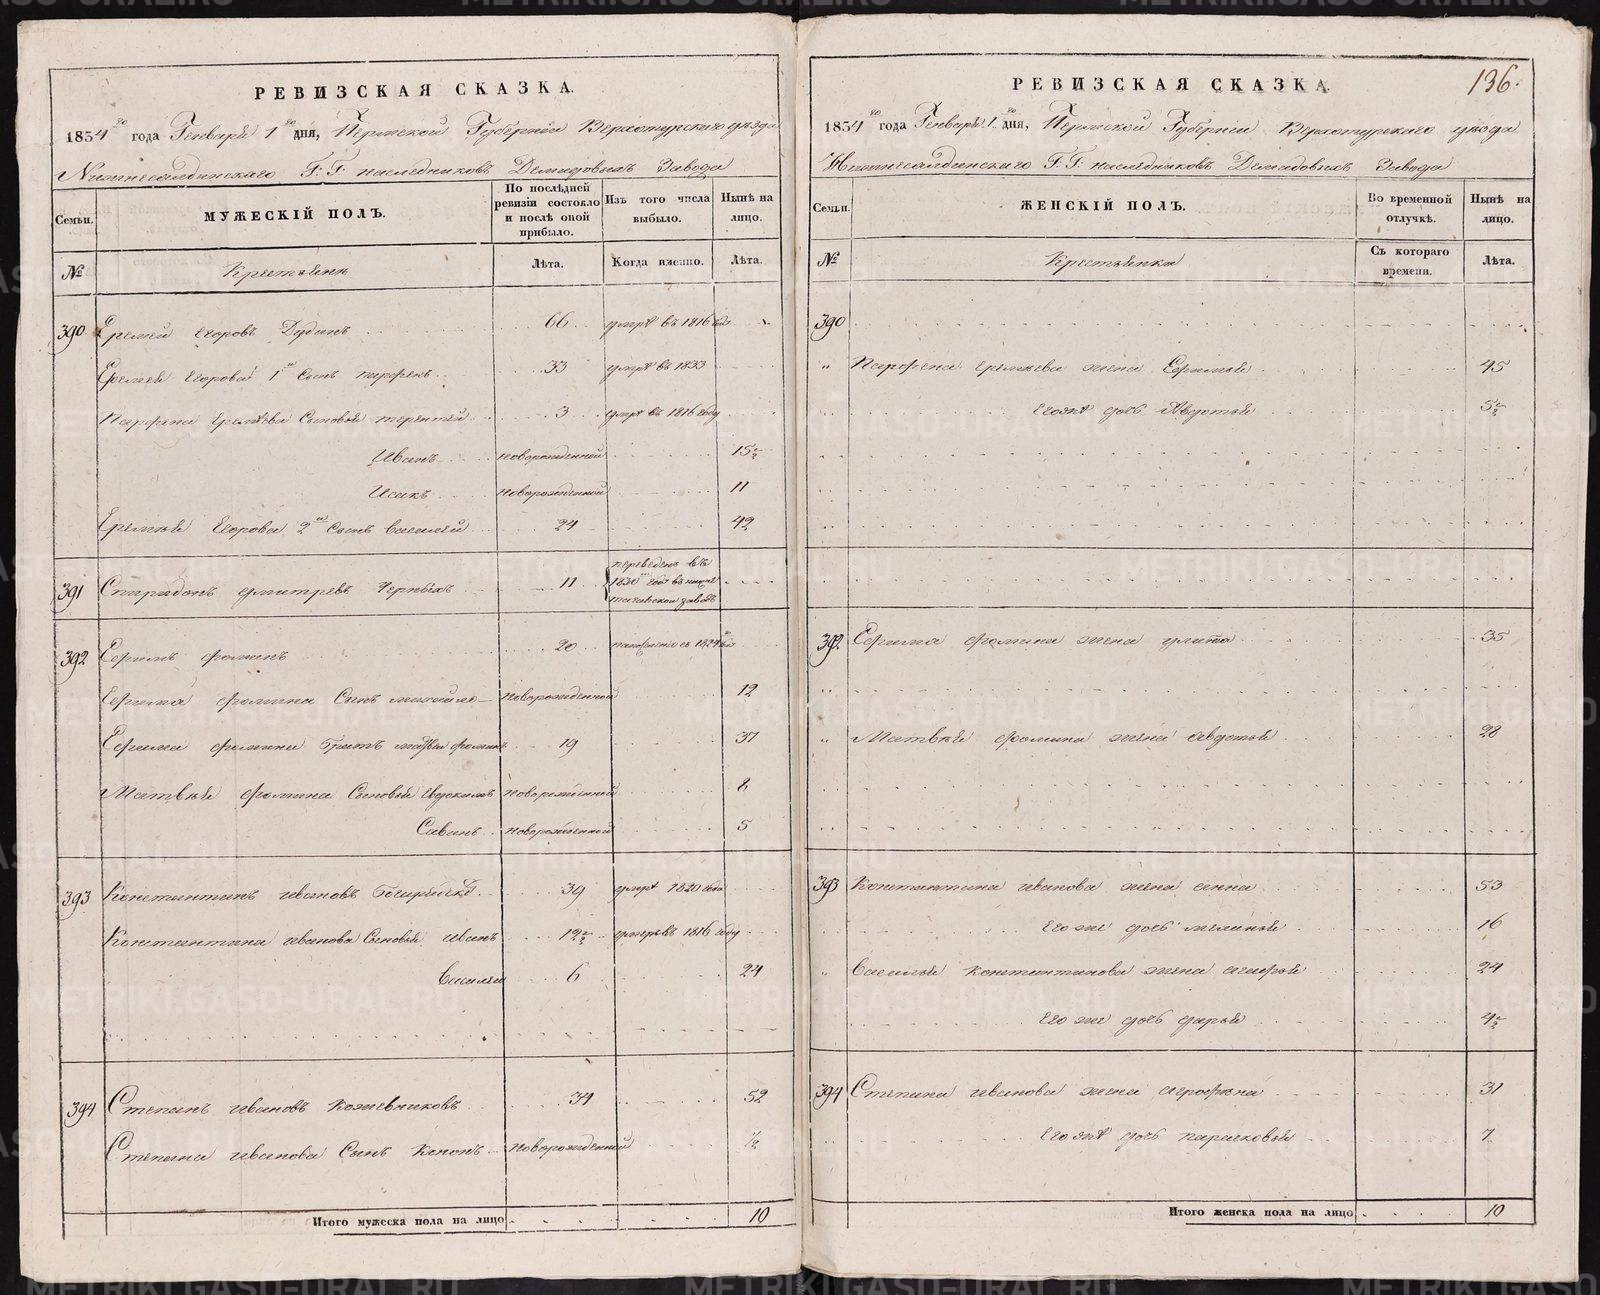 РЕВИЗСКАЯ СКАЗКА.
1834го года Генваря 1го дня, Пермской Губернии Верхотурскаго уезда
Нижнесалдинскаго Г: Г: наследниковъ Демидовыхъ Завода
Семьи. МУЖЕСКІЙ ПОЛЪ. По послѣдней ревизіи состояло и послѣ оной прибыло. Изъ того числа выбыло. Нынѣ на лицо.
№ Крестьяне Лѣта. Когда именно. Лѣта.
390 Еремей Егоровъ Дудинъ 66 умре въ 1816
Еремея Егорова 1й сынъ парфенъ 33 умре въ 1833
Парфена Еремѣева сыновья терентей 3 умре въ 1816 году
Иванъ новорожденной 15½
Исакъ новорожденной 11
Еремѣя Егорова 2й сынъ василей 24 42
391 Спиридонъ дмитревъ Черныхъ 11 переведенъ въ 1830 году въ нижне заводъ
392 Ефимъ фоминъ 20 1824
Ефима фомина сынъ михайло новорожденной 12
Ефима фомина братъ матвей фоминъ 19 37
Матвѣя фомина сыновья евдокимъ новорожденной 8
Савинъ новорожденной 5
393 Константинъ ивановъ 39 умре 1820 года
Константина иванова сыновья иванъ 12½ умре въ 1816 году
василей 6 24
394 Степанъ ивановъ Кожевниковъ 34 52
Степана иванова сынъ Кононъ новорожденной ½
Итого мужеска пола на лицо 10
РЕВИЗСКАЯ СКАЗКА.
136.
1834го года Генваря 1го дня, Пермской Губернии Верхотурскаго уезда
Нижнесалдинскаго Г: Г: наследниковъ Демидовыхъ Завода
Семьи. ЖЕНСКІЙ ПОЛЪ. Во временной отлучкѣ. Нынѣ на лицо.
№ Крестьянки Съ котораго времени. Лѣта.
390
" Парфена еремѣева жена Ефимья 45
Его же дочь Авдотья 5½
392 Ефима фомина жена улита 35
" Матвѣя фомина жена авдотья 28
393 Константина иванова жена анна 53
Его же дочь маланья 16
" василья константинова жена 24
Его же дочь дарья 4½
394 Степана иванова жена аграфена 31
Его же дочь парасковья 7
Итого женска пола на лицо 10
METRIKI.GASO-URAL.RU